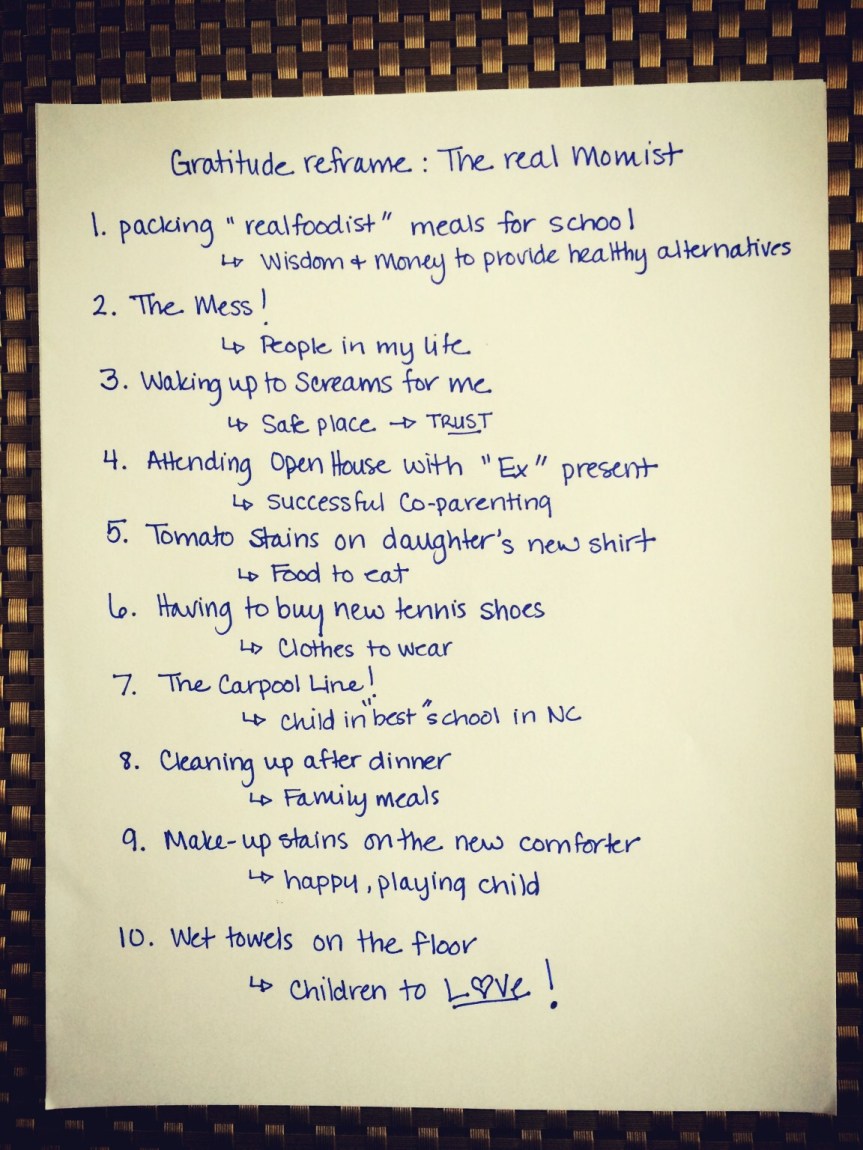 Gratitude reframe : The real Momist
1. packing "realfoodist" meals for school
↳ Wisdom + money to provide healthy alternatives
2. The Mess!
↳ People in my life
3. Waking up to Screams for me
↳ Safe place → TRUST
4. Attending Open House with "Ex" present
↳ Successful Co-parenting
5. Tomato Stains on daughter's new shirt
↳ Food to eat
6. Having to buy new tennis shoes
↳ Clothes to wear
7. The Carpool Line!
↳ child in "best" school in NC
8. Cleaning up after dinner
↳ Family meals
9. Make-up stains on the new comforter
↳ happy, playing child
10. Wet towels on the floor
↳ Children to L♡Ve!